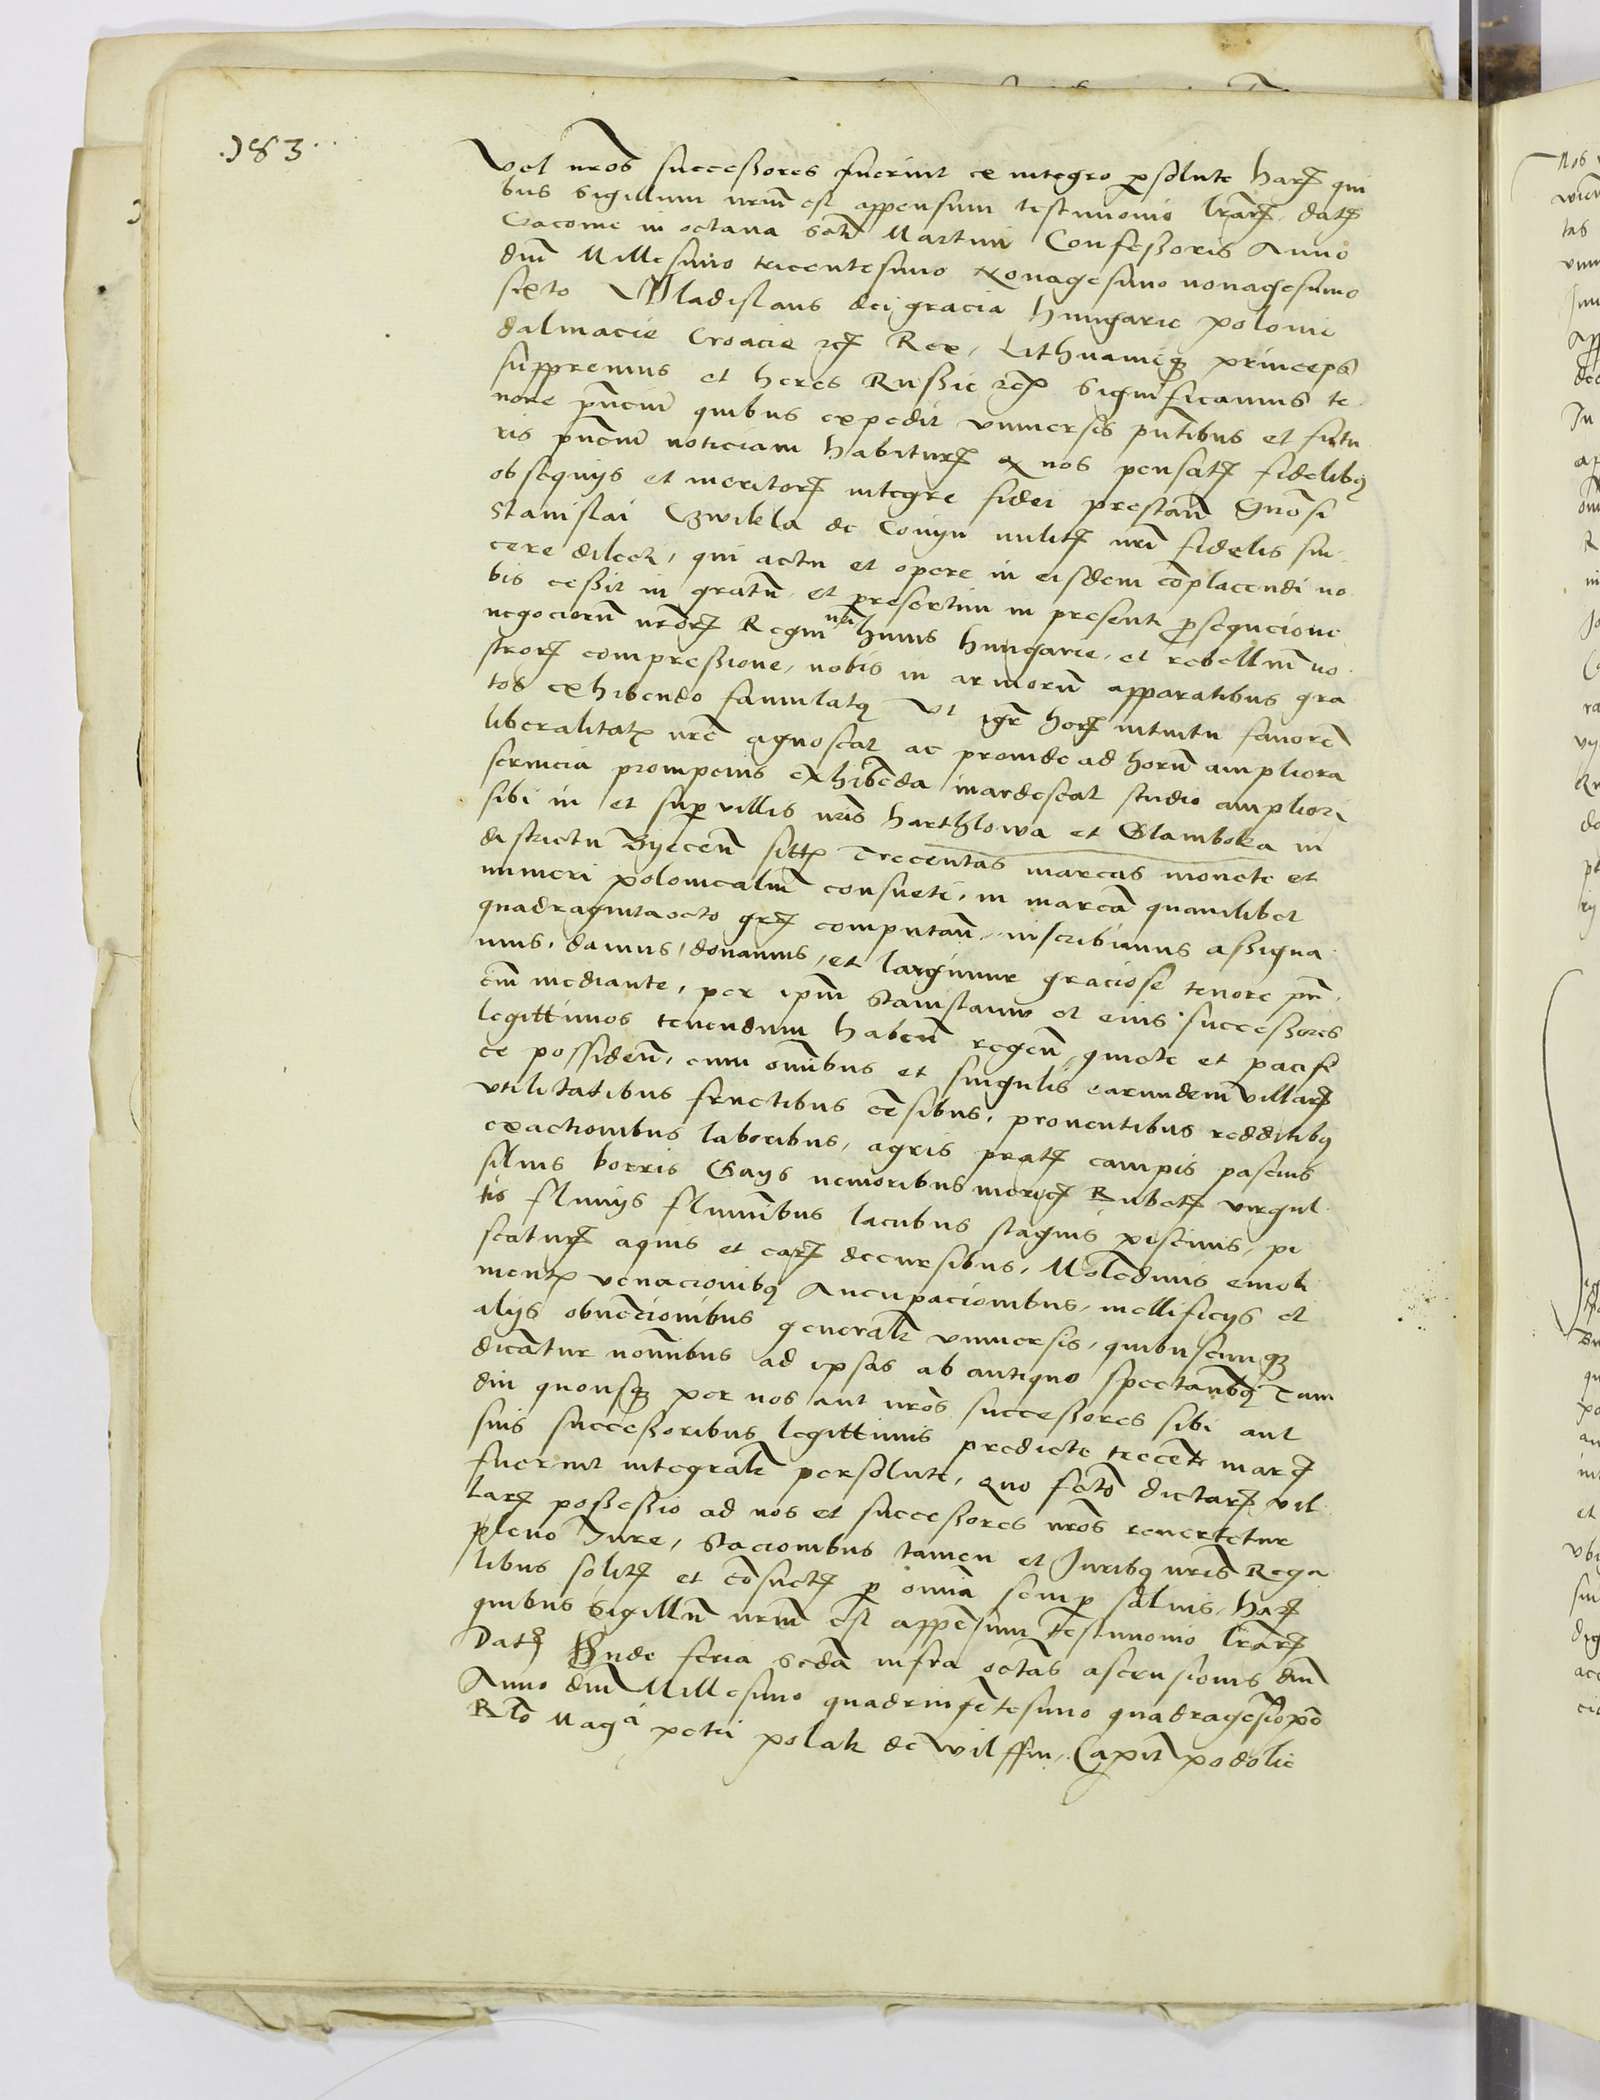 .183.
vel nros successores fuerint ex integro persolute harum qui
bus sigillum nrum est appensum testimonio lrarum. datum
Cracovie in octava scti Martini Confessoris Anno
dni Millesimo tricentesimo Nonagesimo nonagesimo
sexto Wladislaus dei gracia hungarie polonie
dalmacie Croacie etc Rex, Lithuanieque princeps
suppremus et heres Russie etc Significamus te
nore pncium quibus expedit universis pntibus et futu
ris pncium noticiam habituris q nos pensatis fidelibus
obsequijs et meritorum integre fidei prestan Gnosi
Stanislai Czwikla de Conyn militis nri fidelis sin
cere dilecti, qui actu et opere in eisdem complacendi no
bis cessit in gratum et presertim in presenti prosequcione
negociorum nrorum Regni nri huius hungarie, et rebellium no
strorum compressione, nobis in armorum apparatibus gra
tos exhibendo famulatus Ut igr horum intuitu favorem
liberalitatis nre agnoscat ac proinde ad horum ampliora
servicia prompcius exhibenda inardescat studio ampliori
sibi in et super villis nris harthlowa et Glamboka in
districtu Byecen sitis Trecentas marcas monete et
numeri polonicalium consueti, in marcam quamlibet
quadragintaocto gros computan, inscribimus assigna
mus, damus, donamus, et largimur graciose tenore pn
cium mediante, per ipm Stanislaum et eius successores
legittimos tenendum haben regen quiete et pacifi
ce possiden, cum omnibus et singulis earundem villarum
utilitatibus fructibus censibus, proventibus redditibus
exactionibus laboribus, agris pratis campis pascuis
silvis borris Gays nemoribus mericis Rubetis virgul
tis fluvijs fluminibus lacubus stagnis piscinis, pi
scaturis aquis et earum decursibus, Molendinis emoli
mentis venacionibus Aucupacionibus, mellificijs et
alijs obvencionibus generaliter universis, quibuscumque
dicantur nominibus ad ipsas ab antiquo spectantibus Tam
diu quousque per nos aut nros successores sibi aut
suis successoribus legittimis predicte trecente marce
fuerint integraliter persolute, quo facto dictarum vil
larum possessio ad nos et successores nros revertetur
pleno Jure, Stacionibus tamen et Juribus nris Rega
libus solitis et consuetis per omnia semper salvis, harum
quibus Sigillum nrum est appensum testimonio lrarum
Datum Bude feria scda infra octavas ascensionis dni
Anno dni Millesimo quadringentesimo quadragesimo primo
Rlo Magci petri polak de wilffin, Capit podolie